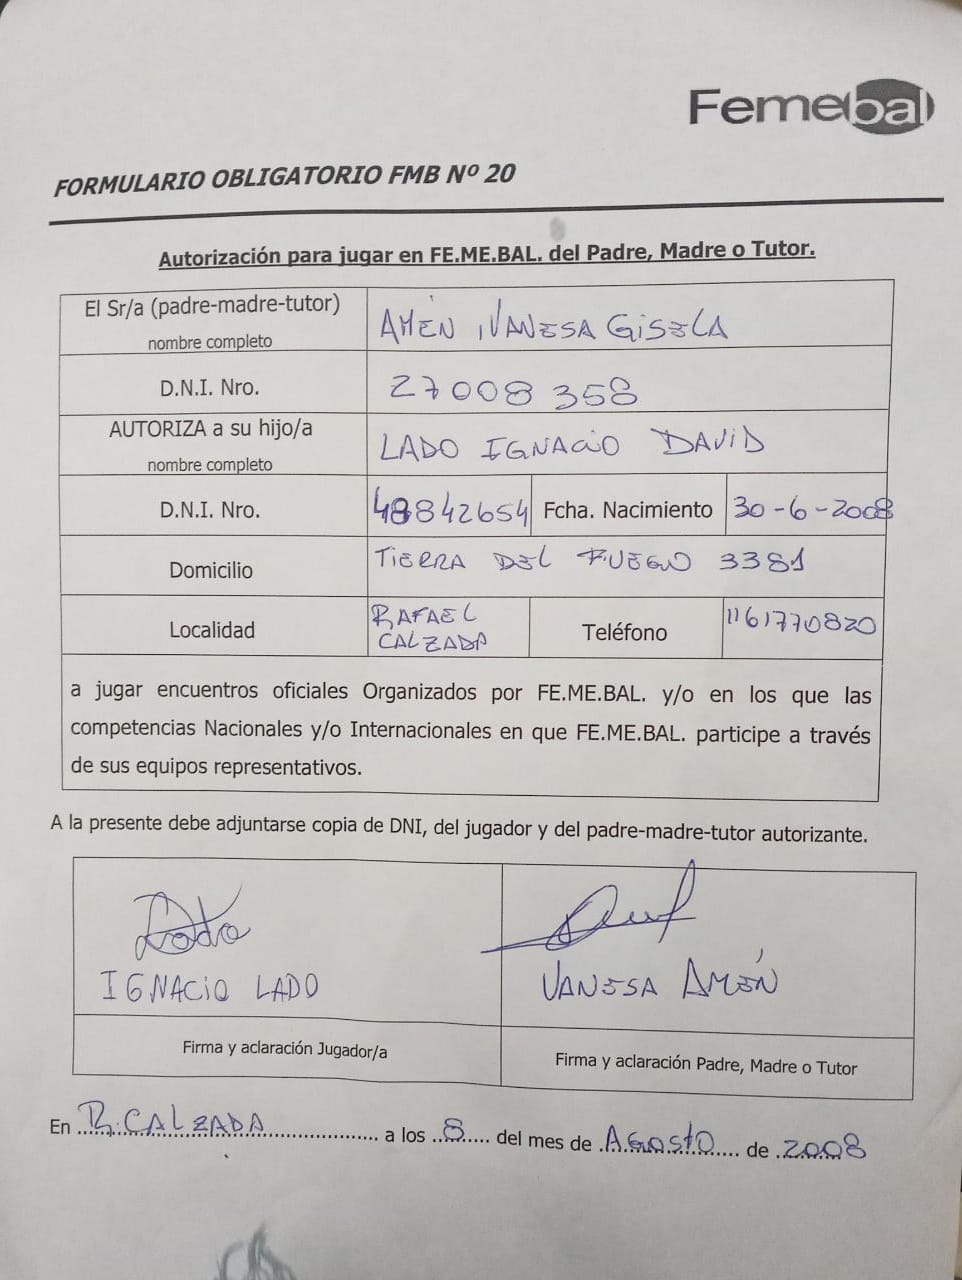 Femebal
FORMULARIO OBLIGATORIO FMB Nº 20
Autorización para jugar en FE.ME.BAL. del Padre, Madre o Tutor.
El Sr/a (padre-madre-tutor)
nombre completo
AMÉN, VANESA GISELA
D.N.I. Nro.
27008 358
AUTORIZA a su hijo/a
nombre completo
LADO IGNACIO DAVID
D.N.I. Nro.
48842654
Fcha. Nacimiento
30-6-2008
Domicilio
TIERRA DEL FUEGO 3381
Localidad
RAFAEL
CALZADA
Teléfono
1161770820
a jugar encuentros oficiales Organizados por FE.ME.BAL. y/o en los que las
competencias Nacionales y/o Internacionales en que FE.ME.BAL. participe a través
de sus equipos representativos.
A la presente debe adjuntarse copia de DNI, del jugador y del padre-madre-tutor autorizante.
IGNACIO LADO
VANESA AMÉN
Firma y aclaración Jugador/a
Firma y aclaración Padre, Madre o Tutor
En R. CALZADA a los 8 del mes de AGOSTO de 2008